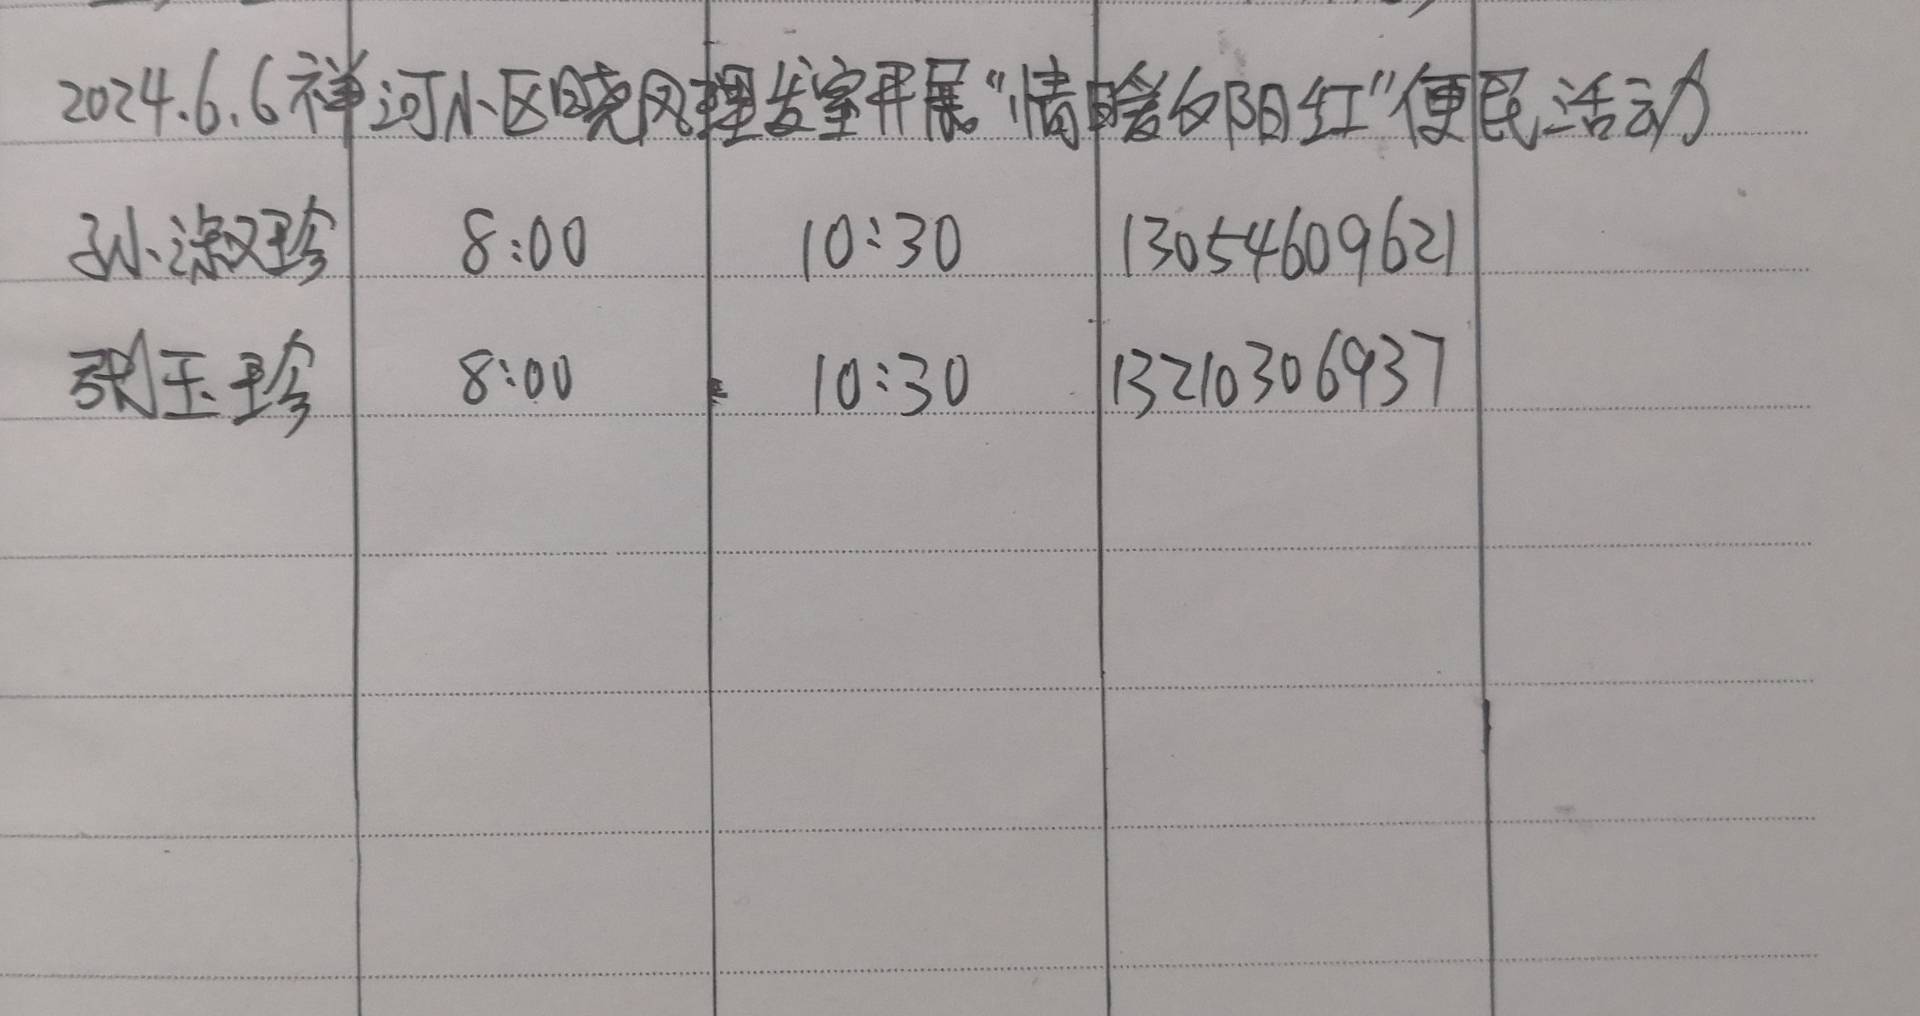 2024.6.6祥河小区晓风理发室开展“情暖夕阳红”便民活动
孙淑珍 8:00 10:30 13054609621
张玉珍 8:00 10:30 13210306937